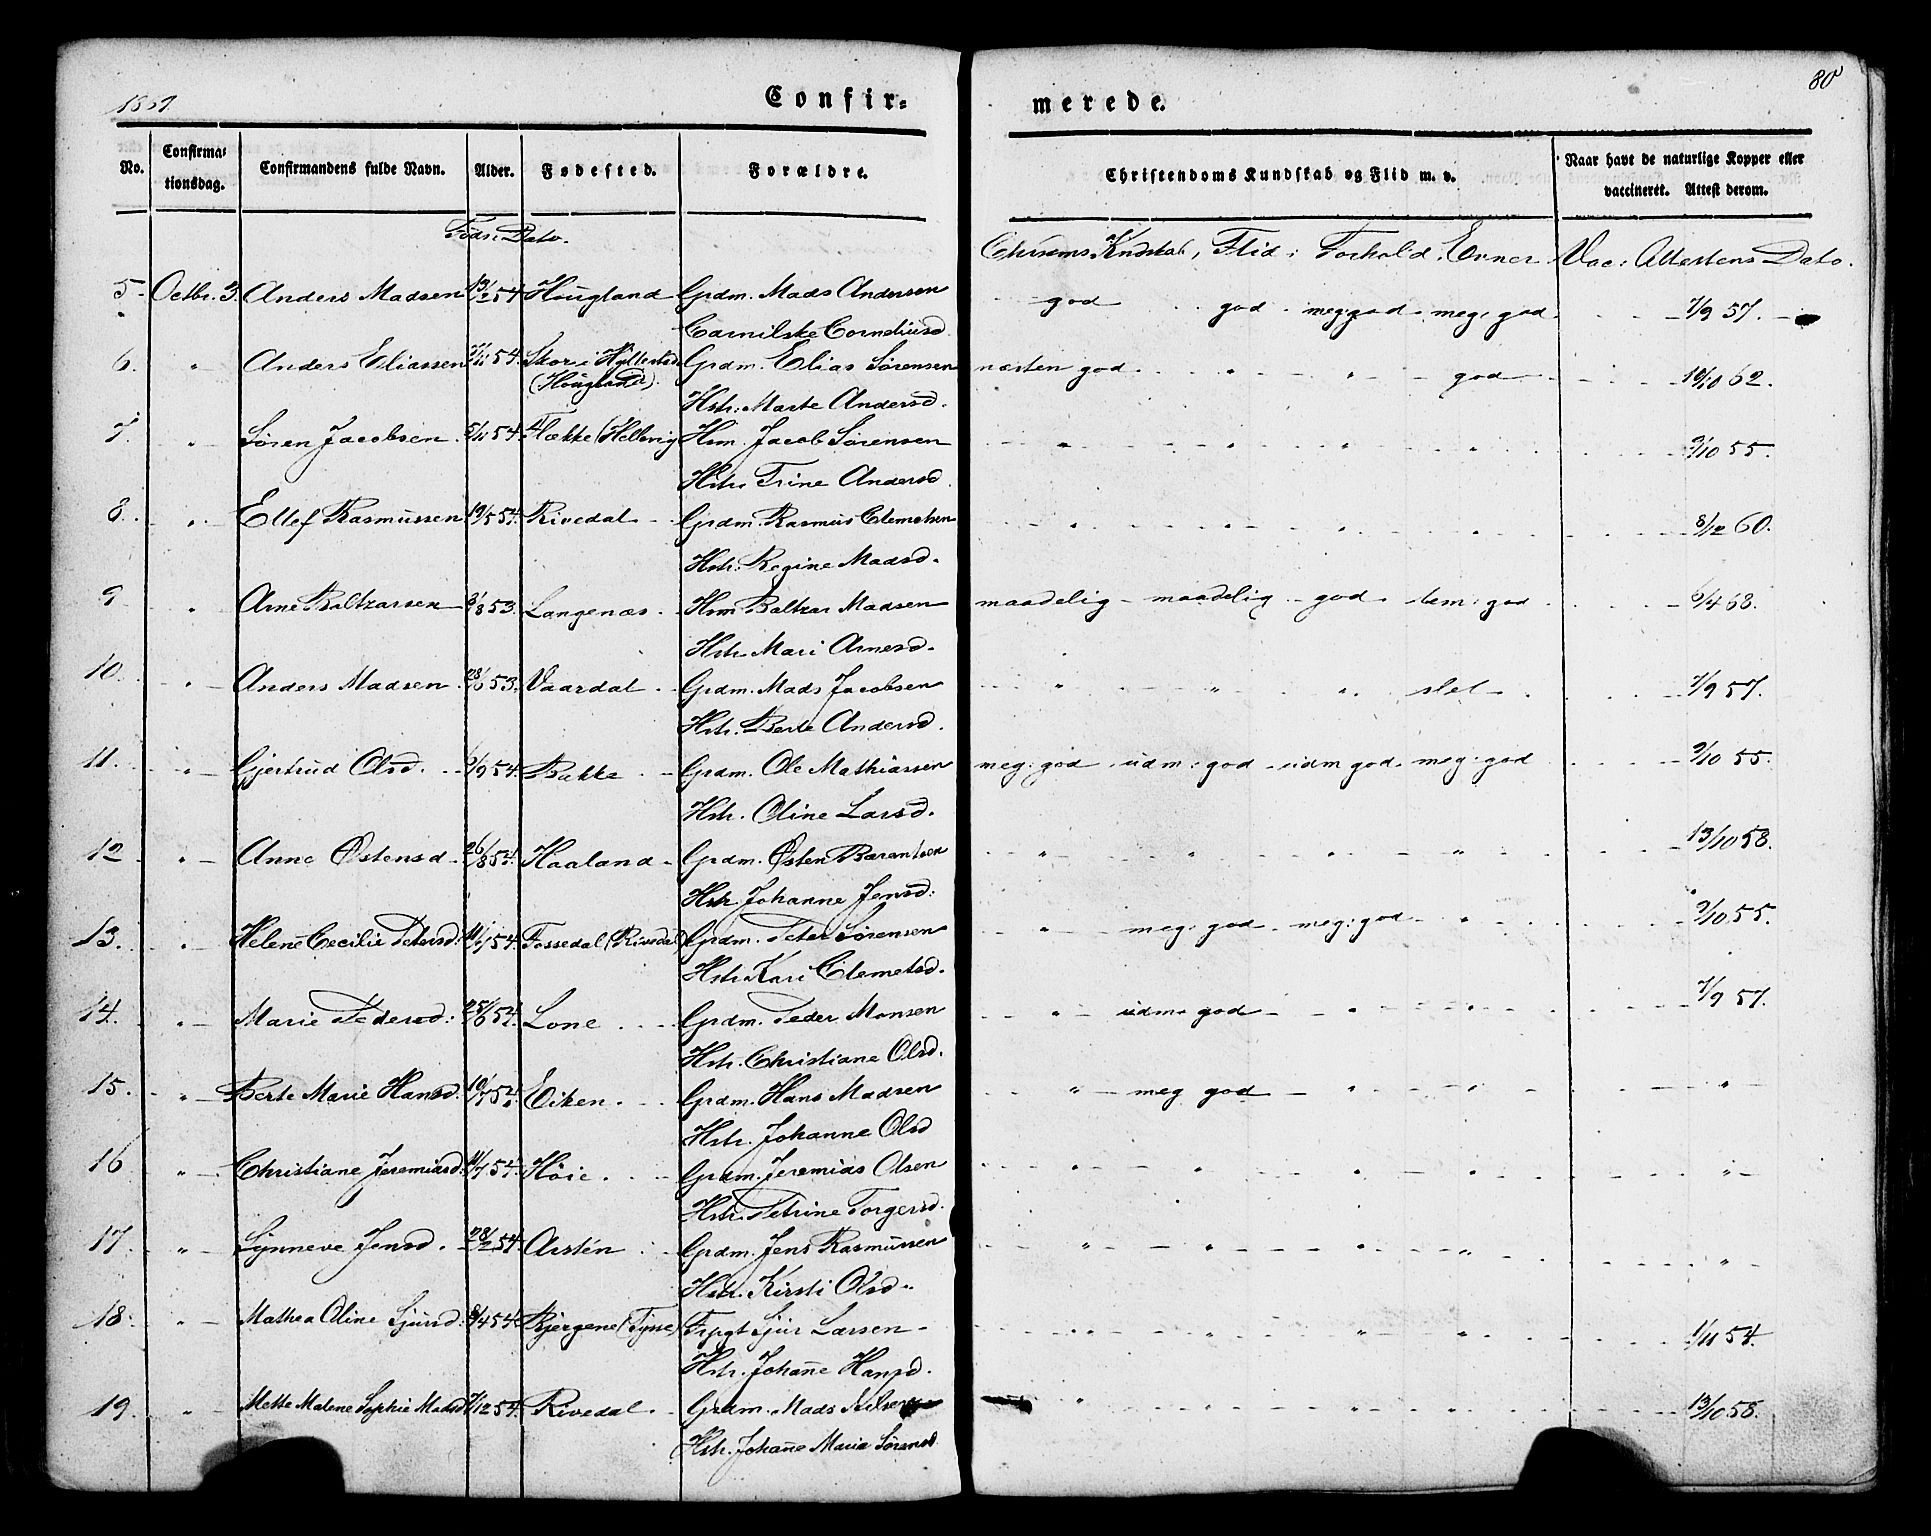 1869.
Confir=
merede.
80
No.
Confirma=
tionsdag.
Confirmandens fulde Navn.
Alder.
Fødested.
Forældre.
Christendoms Kundskab og Flid m. v.
Naar havt de naturlige Kopper eller
vaccineret. Attest derom.
Føds: Dato.
Chrsoms Kndskab, Flid: Forhold, Evner Vac: Attestens Dato.
5 Octbr. 3. Anders Madsen 13/2 54. Hougland Grdm. Mads Andersen god god meg: god meg: god 7/9 57.
Cornelius d.
6. " Anders Eliassen 54. Skor i Hyllestad Grdm. Elias Sørensen næsten god " " god 62.
(Hougland). Hstr. Marte Andersd.
7. " Søren Jacobsen 5/11 54. Flække (Hellevig Hsm. Jacob Sørensen " " " " 9/10 55.
Hstr. Trine Andersd.
8. " Ellef Rasmussen 19/5 54. Rivedal Grdm. Rasmus Clemetsen " " " " 8/12 60.
Hstr. Regine Madsd.
9 " Arne Baltzarsen 8/8 53. Langenæs Hsm. Baltzar Madsen maadelig maadelig god tem: god 6/4 68.
Hstr. Mari Arnesd.
10. " Anders Madsen 53. Vaardal Grdm. Mads Jacobsen " " " slet 7/9 57.
Hstr. Berte Andersd.
11. " Gjertrud Olsd. 54. Bakke Grdm. Ole Mathiassen meg: god udm: god udm god meg: god 9/10 55.
Hstr. Oline Larsd.
12 " Anne Østensd 26/8 54. Haaland Grdm. Østen Barentsen " " " " 13/10 58.
Hstr. Johanne Jensd:
13. " Helene Cecilie Petersd: 54. Fossedal (Rivedal) Grdm. Peter Sørensen " meg: god meg: god " 9/10 55.
Hstr. Kari Clemetsd.
14. " Marie Pedersd: 25/6 54. Lone Grdm. Peder Monsen " udm: god " " 7/9 57.
Hstr. Christiane Olsd.
15. " Berte Marie Hansd. 54. Eiken Grdm. Hans Madsen " meg god " " "
Hstr. Johanne Olsd
16 " Christiane Jeremiasd. 54. Høie Grdm. Jeremias Olsen " " " " "
Hstr. Petrine Torgersd.
17. " Synneve Jensd. 28/2 54. Arstén Grdm. Jens Rasmussen " " " " "
Hstr. Kirsti Olsd.
18. " Mathea Oline Sjursd. 8/4 54. Bjergene (Tysse) Frpgt Sjur Larsen " " " " 1/11 54.
Hstr. Johanne Hansd.
19. " Mette Malene Sophie Madsd 7/12 54. Rivedal Grdm. Mads Nilsen " " " " 13/10 58.
Hstr. Johanne Maria Sørensd.